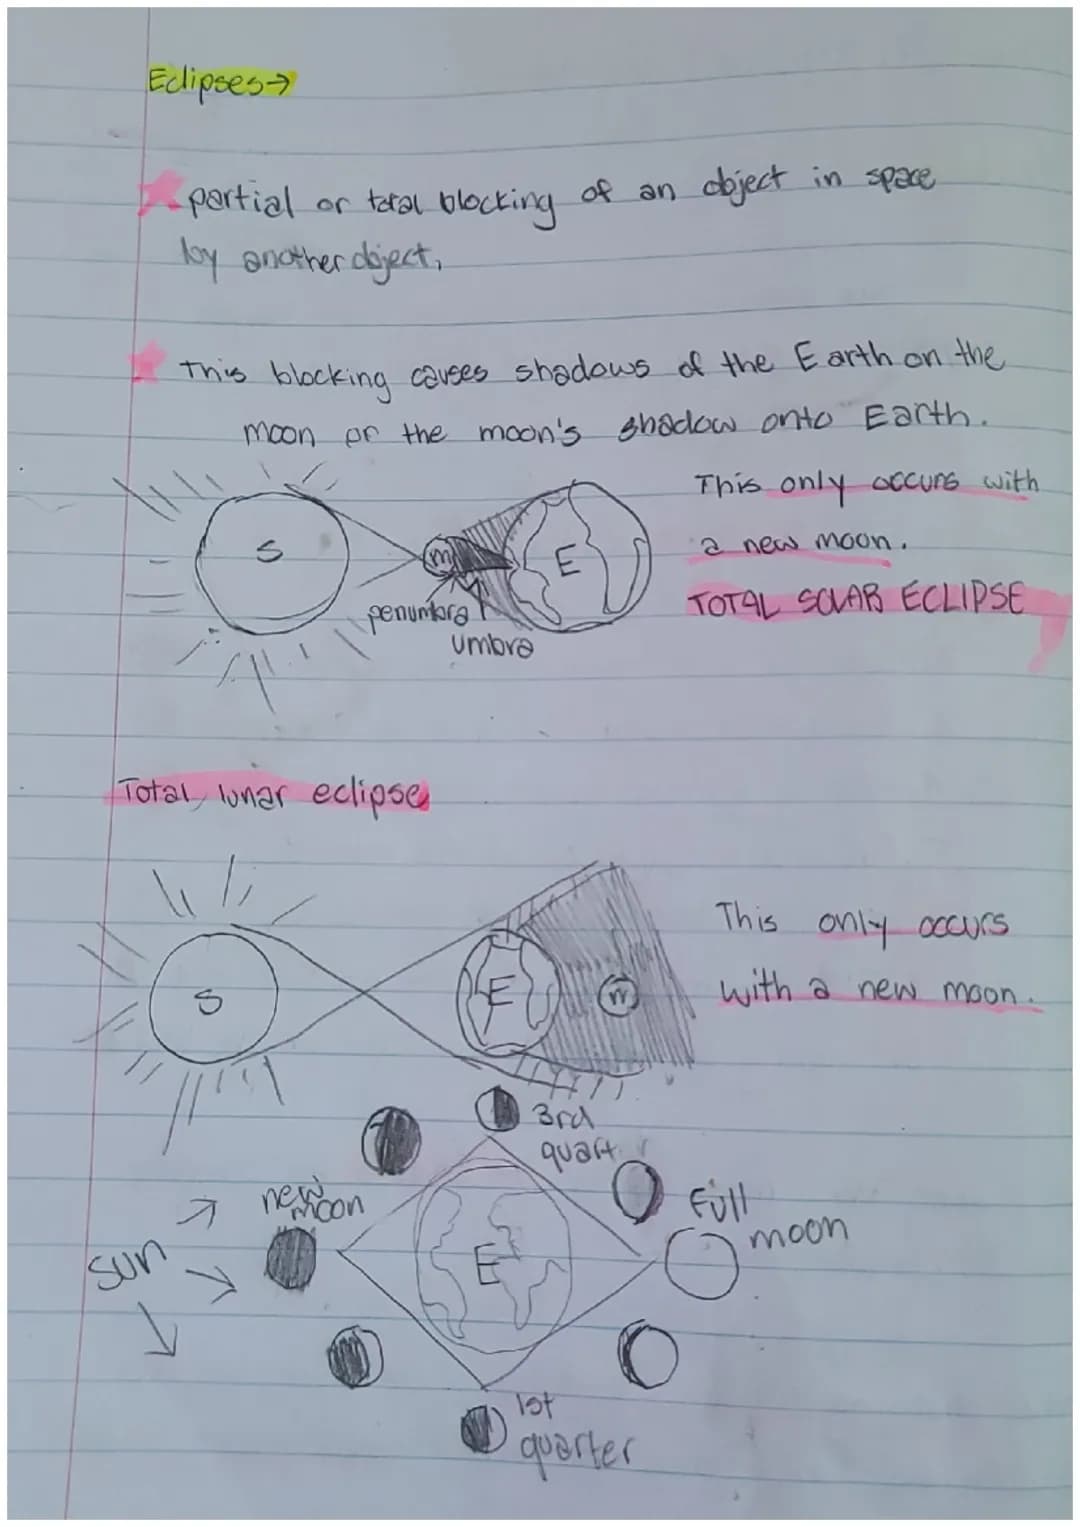 Eclipses→
partial or total blocking of an object in space
by another object,
This blocking causes shadows of the Earth on the
moon or the moon's shadow onto Earth.
This only occurs with
a new moon.
TOTAL SOLAR ECLIPSE
S
m
E
penumbra
umbra
Total lunar eclipse
S
E
m
This only occurs
with a new moon.
3rd
quart
new
moon
Full
moon
Sun
E
1st
quarter